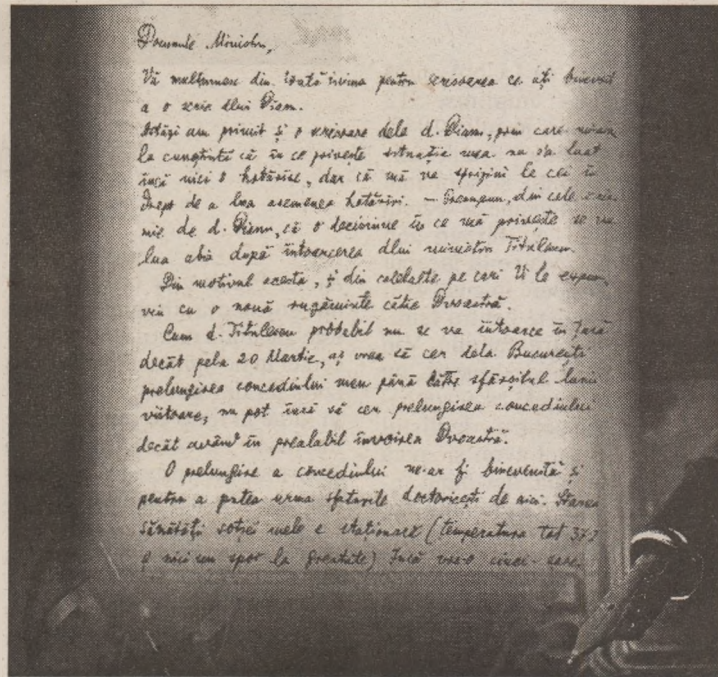 Domnule Ministru,
Vă mulțumesc din toată inima pentru scrisoarea ce ați binevoit
a o scrie dlui
Astăzi am primit și o scrisoare dela d. prin care
la cunoștință că în ce privește situația mea nu s'a luat
încă nici o hotărîre, dar că mă va sprijini la cei în
drept de a lua asemenea hotărîri. — din cele
mie de d. că o deciziune în ce mă privește se va
lua abia după întoarcerea dlui ministru Titulescu.
Din motivul acesta, și din celelalte pe cari Vi le expun,
vin cu o nouă rugăminte către Dvoastră.
Cum d. Titulescu probabil nu se va întoarce în țară
decât pela 20 Martie, aș vrea să cer dela București
prelungirea concediului meu până către sfârșitul lunii
viitoare; nu pot însă să cer prelungirea concediului
decât având în prealabil învoirea Dvoastră.
O prelungire a concediului ne-ar fi binevenită și
pentru a putea urma sfaturile doctoricești de aici. Starea
sănătăți soției mele e staționară (temperatura tot 37·2
și nici un spor la greutate) Încă vre-o cinci-